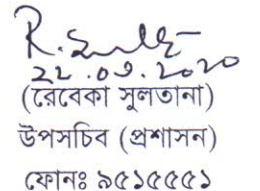 R. Sult
22.03.2020
(রেবেকা সুলতানা)
উপসচিব (প্রশাসন)
ফোনঃ ৯৫১৫৫৫১